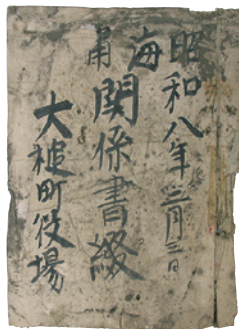 昭和八年三月三日
海甬関係書綴
大槌町役場